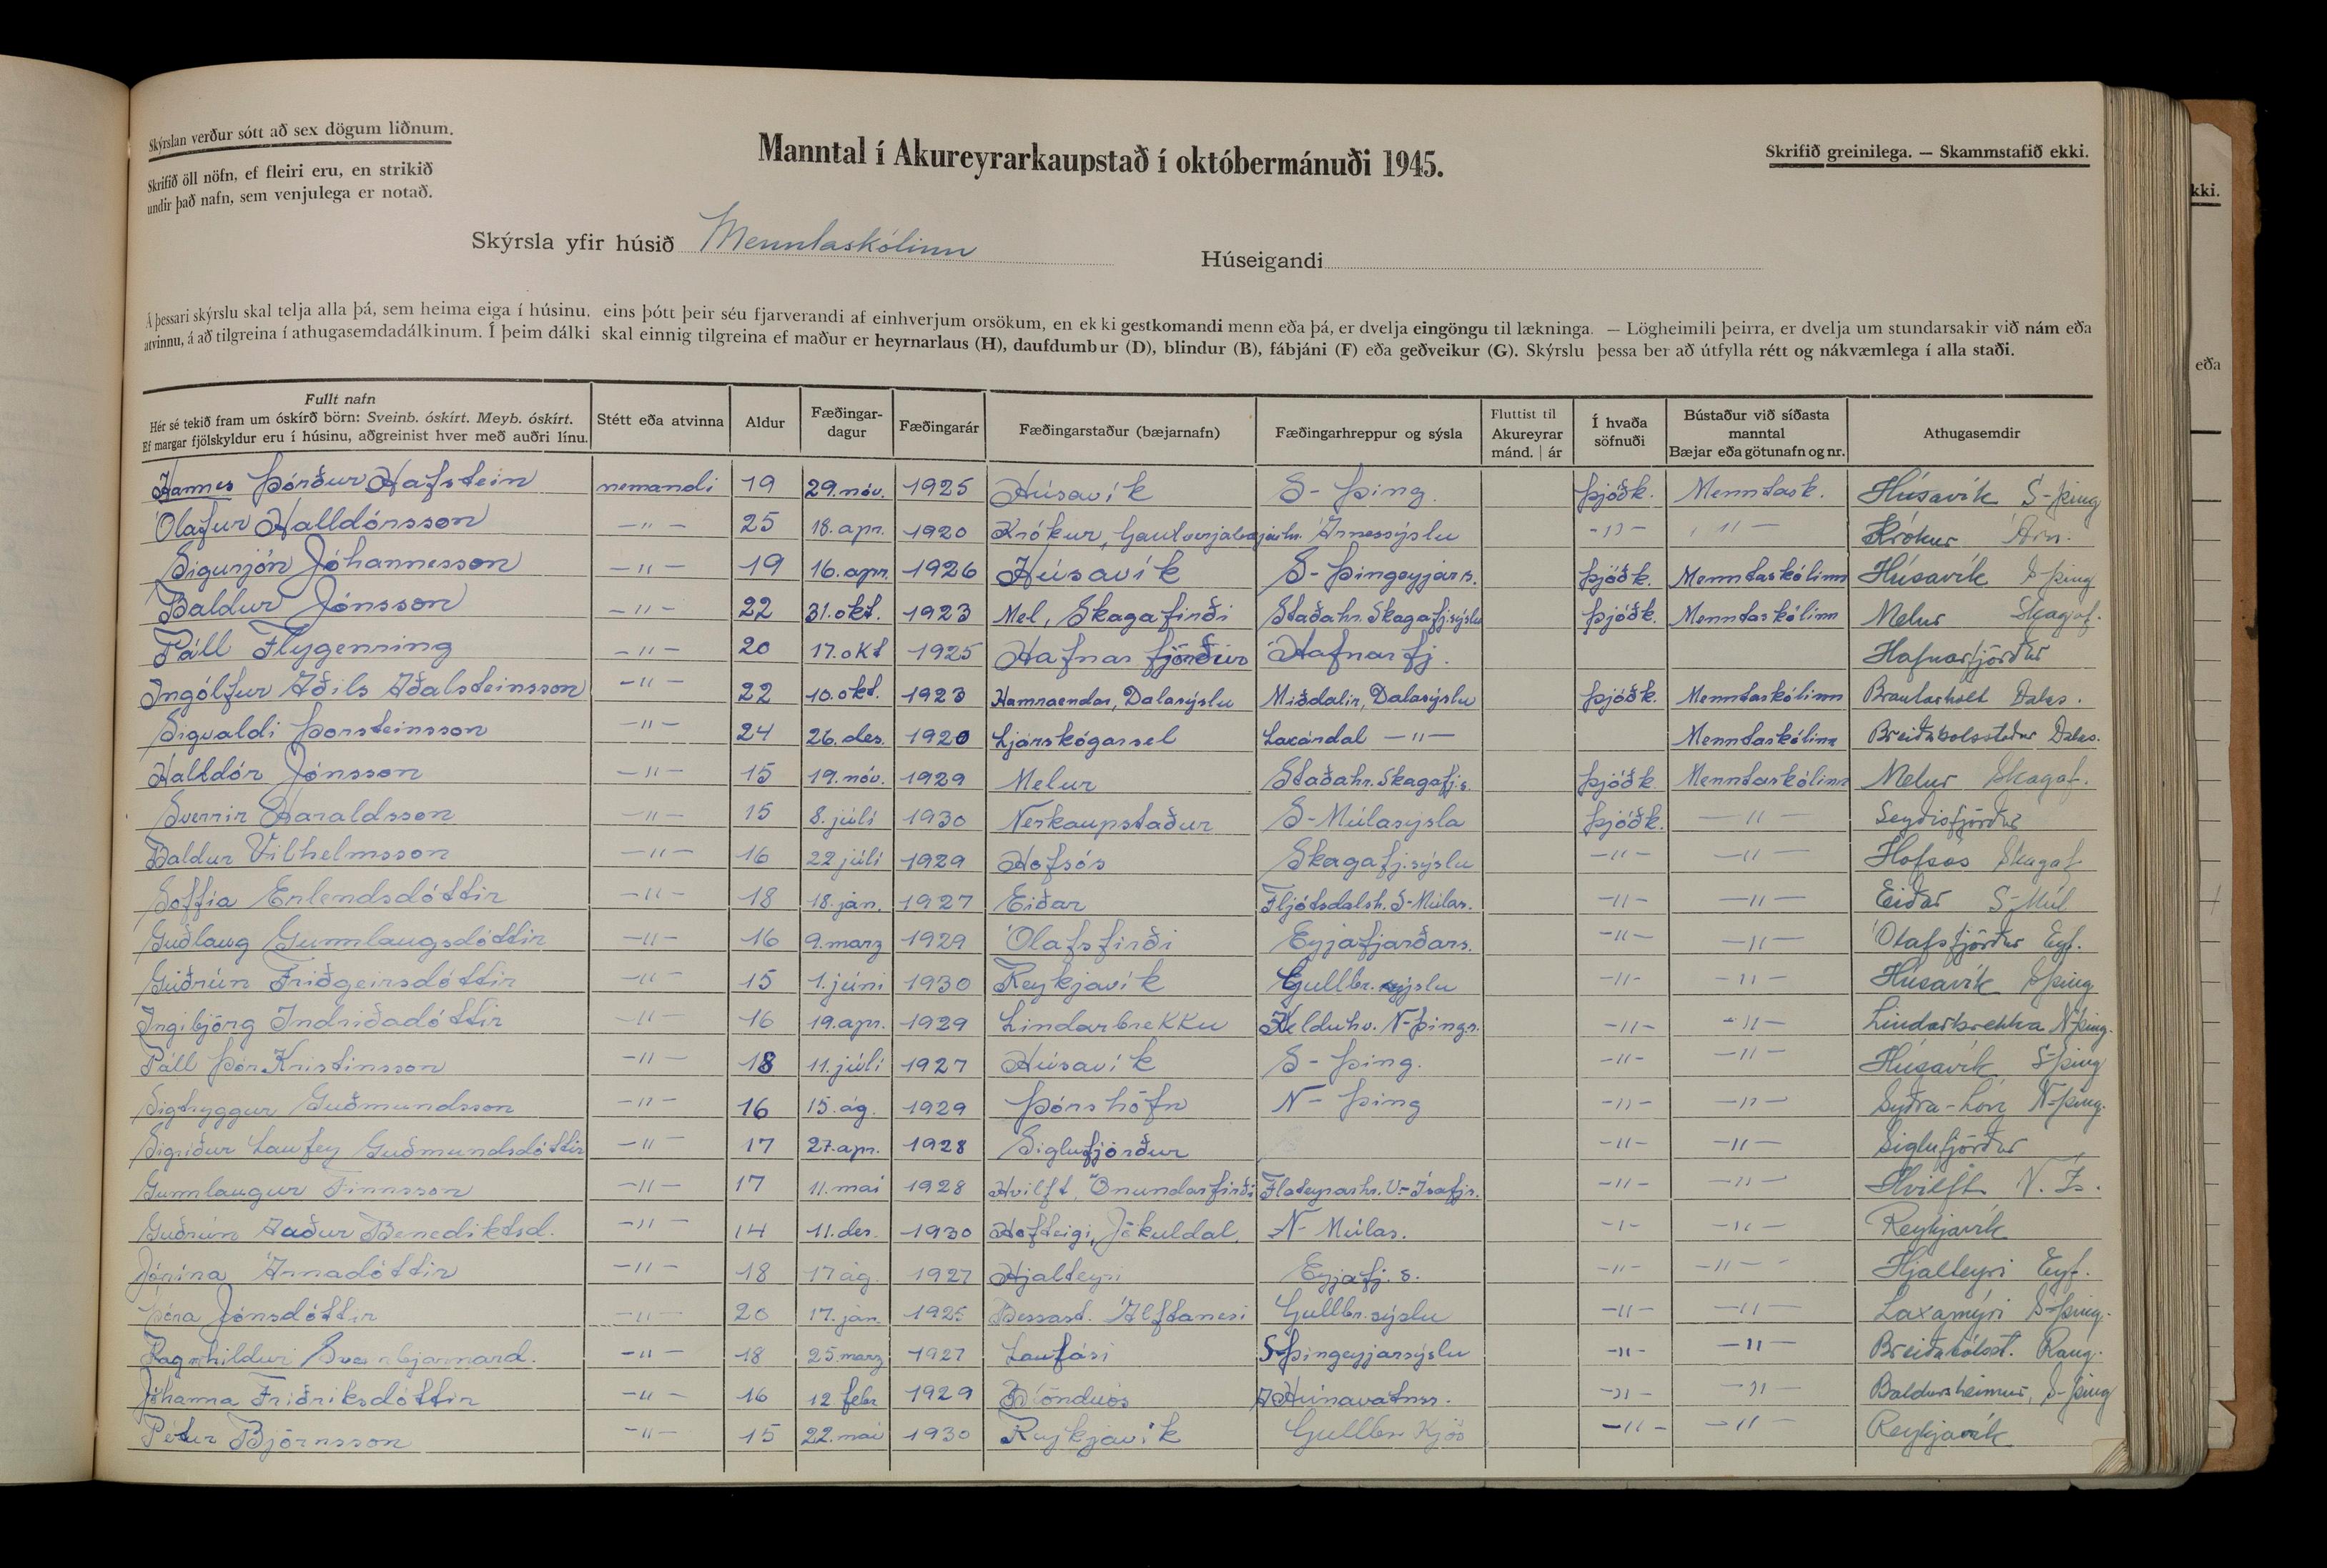 Skýrslan verður sótt að sex dögum liðnum.
Skrifið öll nöfn, ef fleiri eru, en strikið
undir það nafn, sem venjulega er notað.
Manntal í Akureyrarkaupstað í októbermánuði 1945.
Skrifið greinilega. — Skammstafið ekki.
Skýrsla yfir húsið Menntaskólinn
Húseigandi
Á þessari skýrslu skal telja alla þá, sem heima eiga í húsinu, eins þótt þeir séu fjarverandi af einhverjum orsökum, en ekki gestkomandi menn eða þá, er dvelja eingöngu til lækninga. — Lögheimili þeirra, er dvelja um stundarsakir við nám eða
atvinnu, á að tilgreina í athugasemdadálkinum. Í þeim dálki skal einnig tilgreina ef maður er heyrnarlaus (H), daufdumbur (D), blindur (B), fábjáni (F) eða geðveikur (G). Skýrslu þessa ber að útfylla rétt og nákvæmlega í alla staði.
Fullt nafn
Hér sé tekið fram um óskírð börn: Sveinb. óskírt. Meyb. óskírt.
Ef margar fjölskyldur eru í húsinu, aðgreinist hver með auðri línu.
Stétt eða atvinna
Aldur
Fæðingar-
dagur
Fæðingarár
Fæðingarstaður (bæjarnafn)
Fæðingarhreppur og sýsla
Fluttist til
Akureyrar
mánd. | ár
Í hvaða
söfnuði
Bústaður við síðasta
manntal
Bæjar eða götunafn og nr.
Athugasemdir
Hannes Þórður Hafstein nemandi 19 29. nóv. 1925 Húsavík S-Þing. Þjóðk. Menntask. Húsavík S-Þing
Ólafur Halldórsson —"— 25 18. apr. 1920 Krókur, Gaulverjabæjarhr. Árnessýslu —"— —"— Krókur Árn.
Sigurjón Jóhannesson —"— 19 16. apr. 1926 Húsavík S-Þingeyjars. Þjóðk. Menntaskólinn Húsavík S-Þing
Baldur Jónsson —"— 22 31. okt. 1923 Mel, Skagafirði Staðahr. Skagafj.sýslu Þjóðk. Menntaskólinn Melur Skagaf.
Páll Flygenring —"— 20 17. okt 1925 Hafnarfjörður Hafnarfj. Hafnarfjörður
Ingólfur Aðils Aðalsteinsson —"— 22 10. okt. 1923 Hamraendar, Dalasýslu Miðdalir, Dalasýslu Þjóðk. Menntaskólinn Brautarholt Dalas.
Sigvaldi Þorsteinsson —"— 24 26. des. 1920 Ljárskógarsel Laxárdal —"— Menntaskólinn Breiðabolsstaður Dalas.
Halldór Jónsson —"— 15 19. nóv. 1929 Melur Staðahr. Skagafj.s. Þjóðk. Menntaskólinn Melur Skagaf.
Sverrir Haraldsson —"— 15 8. júlí 1930 Neskaupstaður S-Múlasýsla Þjóðk. —"— Seyðisfjörður
Baldur Vilhelmsson —"— 16 22 júlí 1929 Hofsós Skagafj.sýslu —"— —"— Hofsós Skagaf
Soffía Erlendsdóttir —"— 18 18. jan. 1927 Eiðar Fljótsdalsh. S-Múlas. —"— —"— Eiðar S-Múl
Guðlaug Gunnlaugsdóttir —"— 16 9. marz 1929 Ólafsfirði Eyjafjarðars. —"— —"— Ólafsfjörður Eyf.
Guðrún Friðgeirsdóttir —"— 15 1. júni 1930 Reykjavík Gullbr. sýslu —"— —"— Húsavík S-Þing
Ingibjörg Indriðadóttir —"— 16 19. apr. 1929 Lindarbrekku Kelduhv. N-Þings. —"— —"— Lindarbrekka N-Þing.
Páll Þór Kristinsson —"— 18 11. júlí 1927 Húsavík S-Þing. —"— —"— Húsavík S-Þing
Sigtryggur Guðmundsson —"— 16 15. ág. 1929 Þórshöfn N-Þing —"— —"— Syðra-Lón N-Þing.
Sigríður Laufey Guðmundsdóttir —"— 17 27. apr. 1928 Siglufjörður —"— —"— Siglufjörður
Gunnlaugur Finnsson —"— 17 11. mai 1928 Hvilft, Önundarfirði Flateyrarhr. V-Ísafjs. —"— —"— Hvilft V. Ís.
Guðrún Auður Benediktsd. —"— 14 11. des. 1930 Hofteigi, Jökuldal N-Múlas. —"— —"— Reykjavík
Jónína Árnadóttir —"— 18 17 ág. 1927 Hjalteyri Eyjafj. s. —"— —"— Hjalteyri Eyf.
Þóra Jónsdóttir —"— 20 17. jan. 1925 Bessast. Álftanesi Gullbr.sýslu —"— —"— Laxamýri S-Þing.
Ragnhildur Sveinbjarnard. —"— 18 25. marz 1927 Laufási S-Þingeyjarsýslu —"— —"— Breiðabólsst. Rang.
Jóhanna Friðriksdóttir —"— 16 12 febr 1929 Blönduós A-Húnavatnss. —"— —"— Baldursheimur, S-Þing
Pétur Björnsson —"— 15 22. mai 1930 Reykjavík Gullbr Kjós —"— —"— Reykjavík
kki.
eða